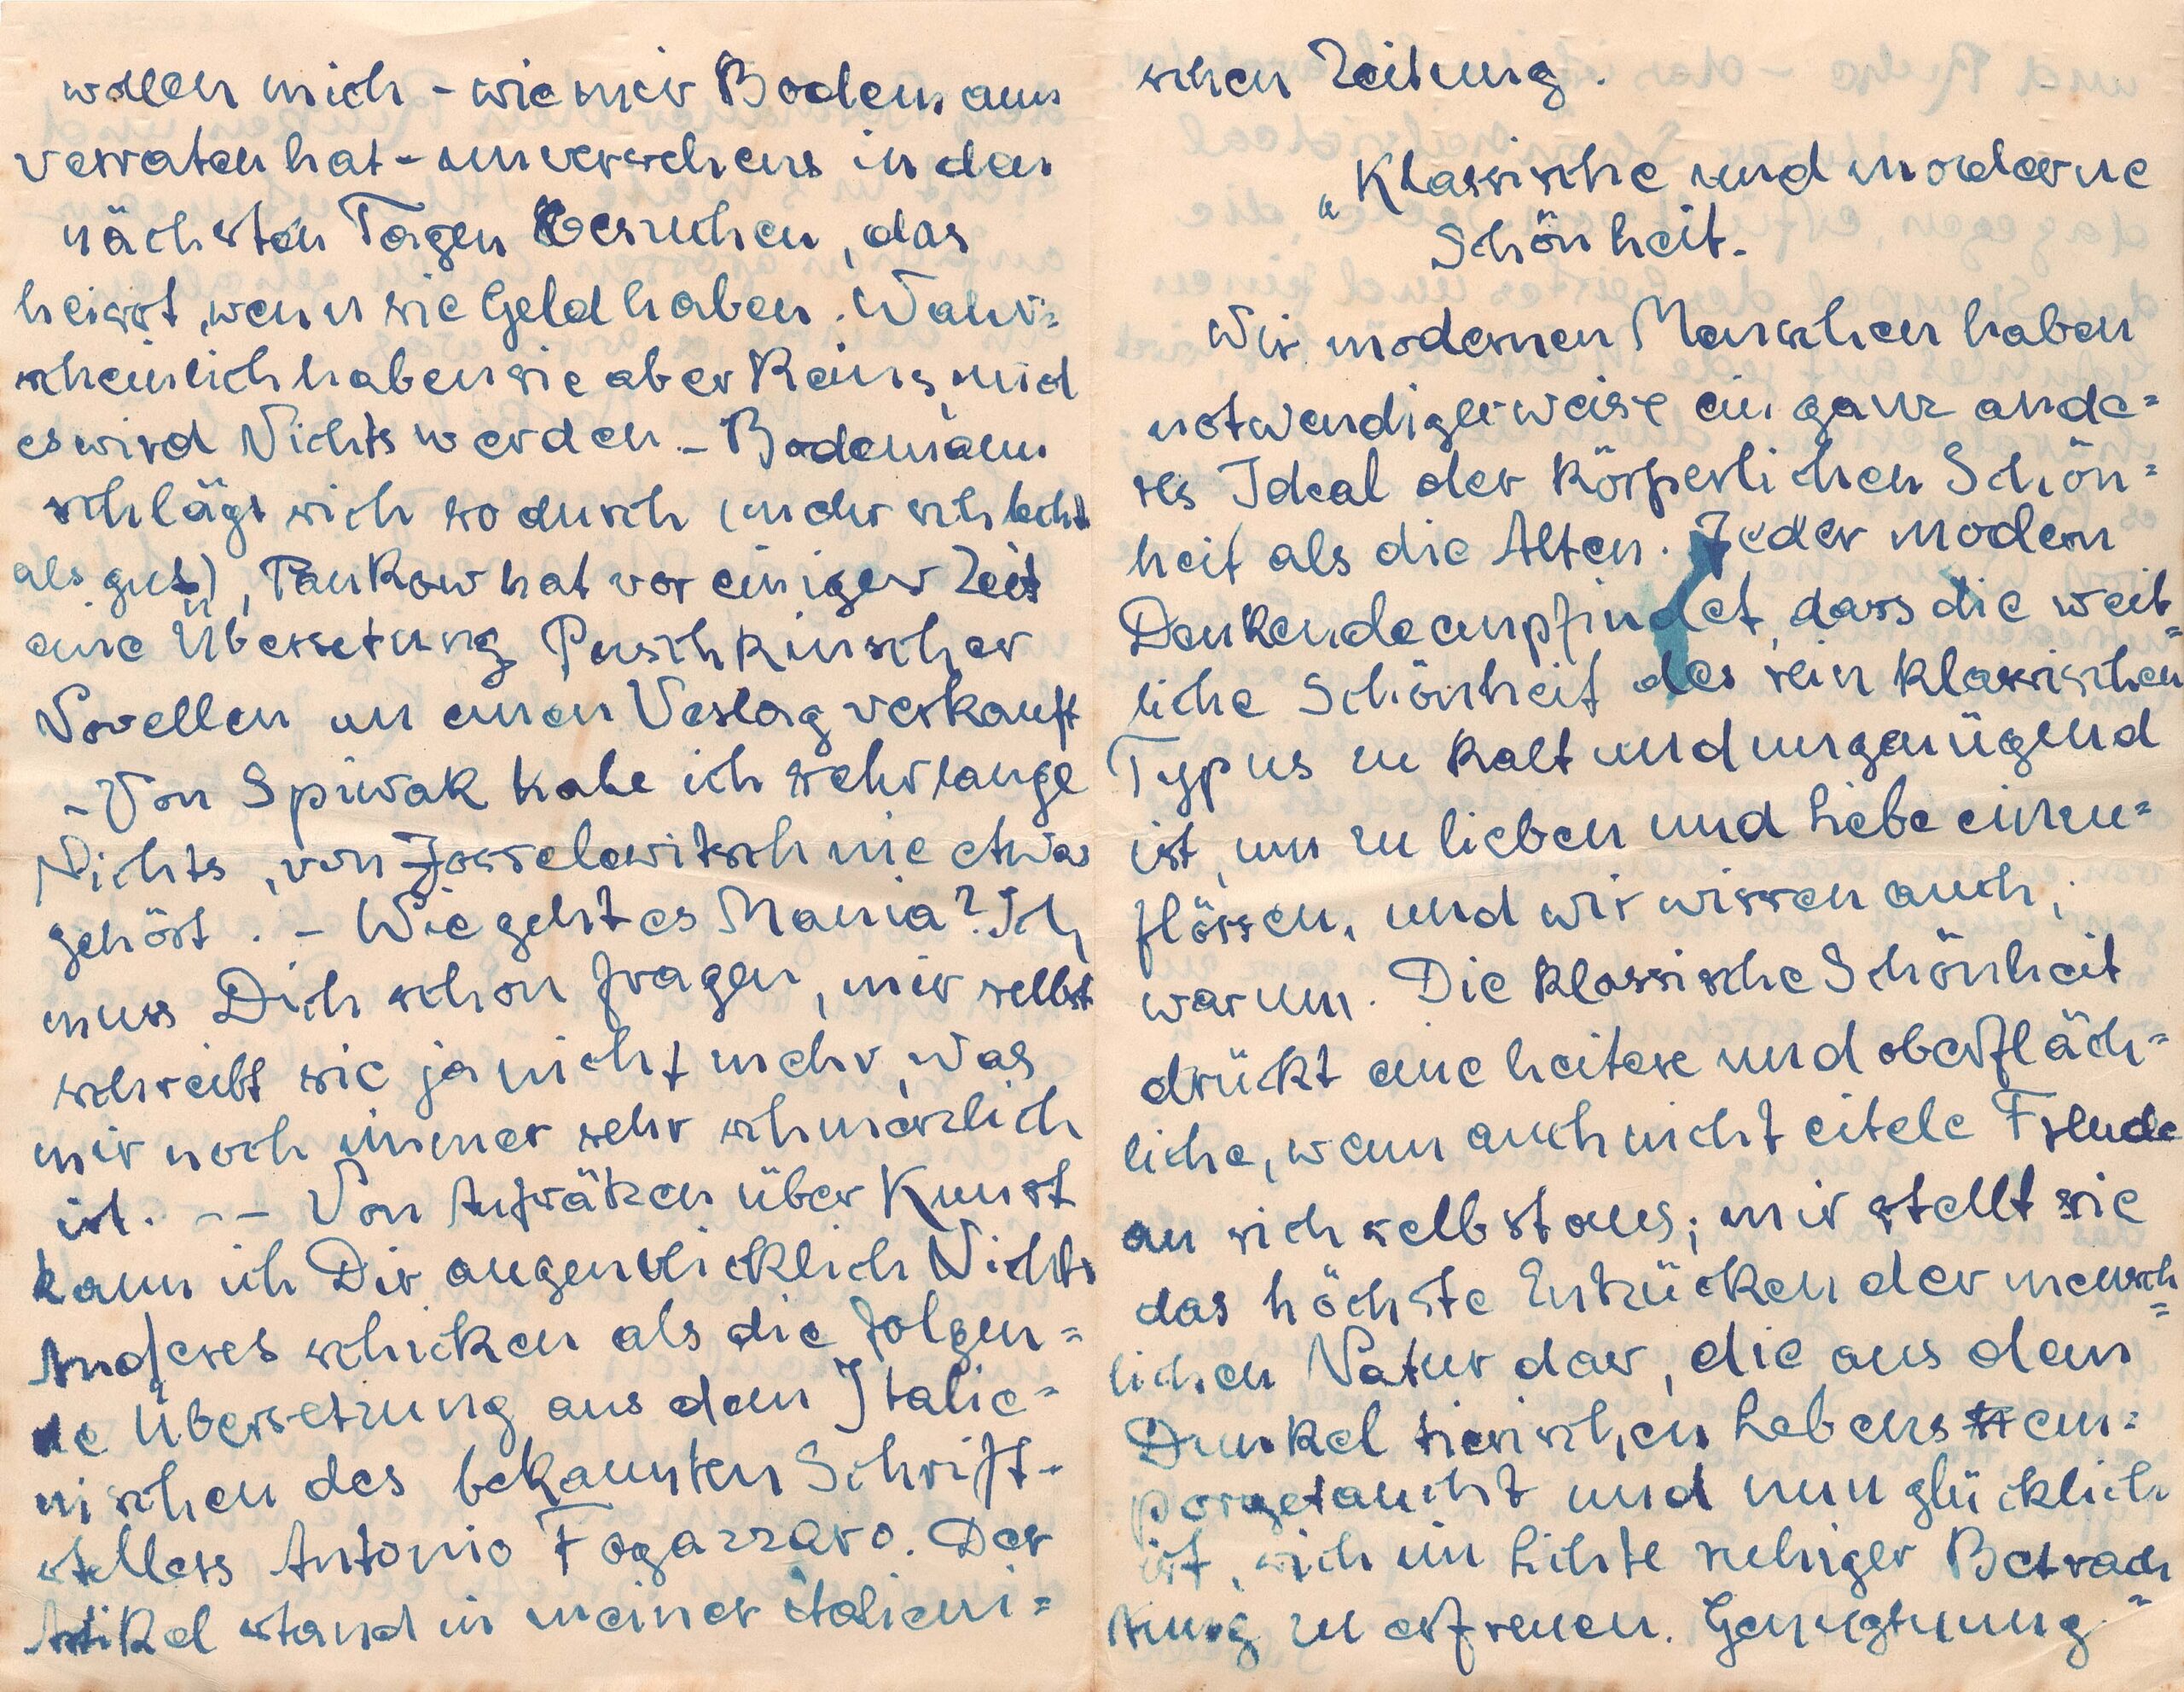 wollen mich - wie mir Bodemann
verraten hat - unversehens in den
nächsten Tagen besuchen, das
heisst, wenn sie Geld haben. Wahr=
scheinlich haben sie aber Keins, und
es wird Nichts werden. - Bodemann
schlägt sich so durch (mehr schlecht
als gut), Pankow hat vor einiger Zeit
eine Übersetzung Puschkinscher
Novellen an einen Verlag verkauft
- Von Spiwak habe ich sehr lange
Nichts, von Josselewitsch nie etwas
gehört. - Wie geht es Mania? Ich
muss Dich schon fragen, mir selbst
schreibt sie ja nicht mehr, was
mir noch immer sehr schmerzlich
ist. -- Von Aufsätzen über Kunst
kann ich Dir augenblicklich Nichts
Anderes schicken als die folgen=
de Übersetzung aus dem Italie=
nischen des bekannten Schrift-
stellers Antonio Fogazzaro. Der
Artikel stand in meiner italieni=
schen Zeitung.
„Klassische und moderne
Schönheit.
Wir modernen Menschen haben
notwendigerweise ein ganz ande=
res Ideal der körperlichen Schön=
heit als die Alten. Jeder modern
Denkende empfindet, dass die weib=
liche Schönheit des rein klassischen
Typus zu kalt und ungenügend
ist, um zu lieben und Liebe einzu=
flössen, und wir wissen auch,
warum. Die klassische Schönheit
drückt eine heitere und oberfläch=
liche, wenn auch nicht eitele Freude
an sich selbst aus; mir stellt sie
das höchste Entzücken der mensch=
lichen Natur dar, die aus dem
Dunkel tierischen Lebens em=
porgetaucht und nun glücklich
ist, sich im Lichte ruhiger Betrach
tung zu erfreuen. Genugtuung